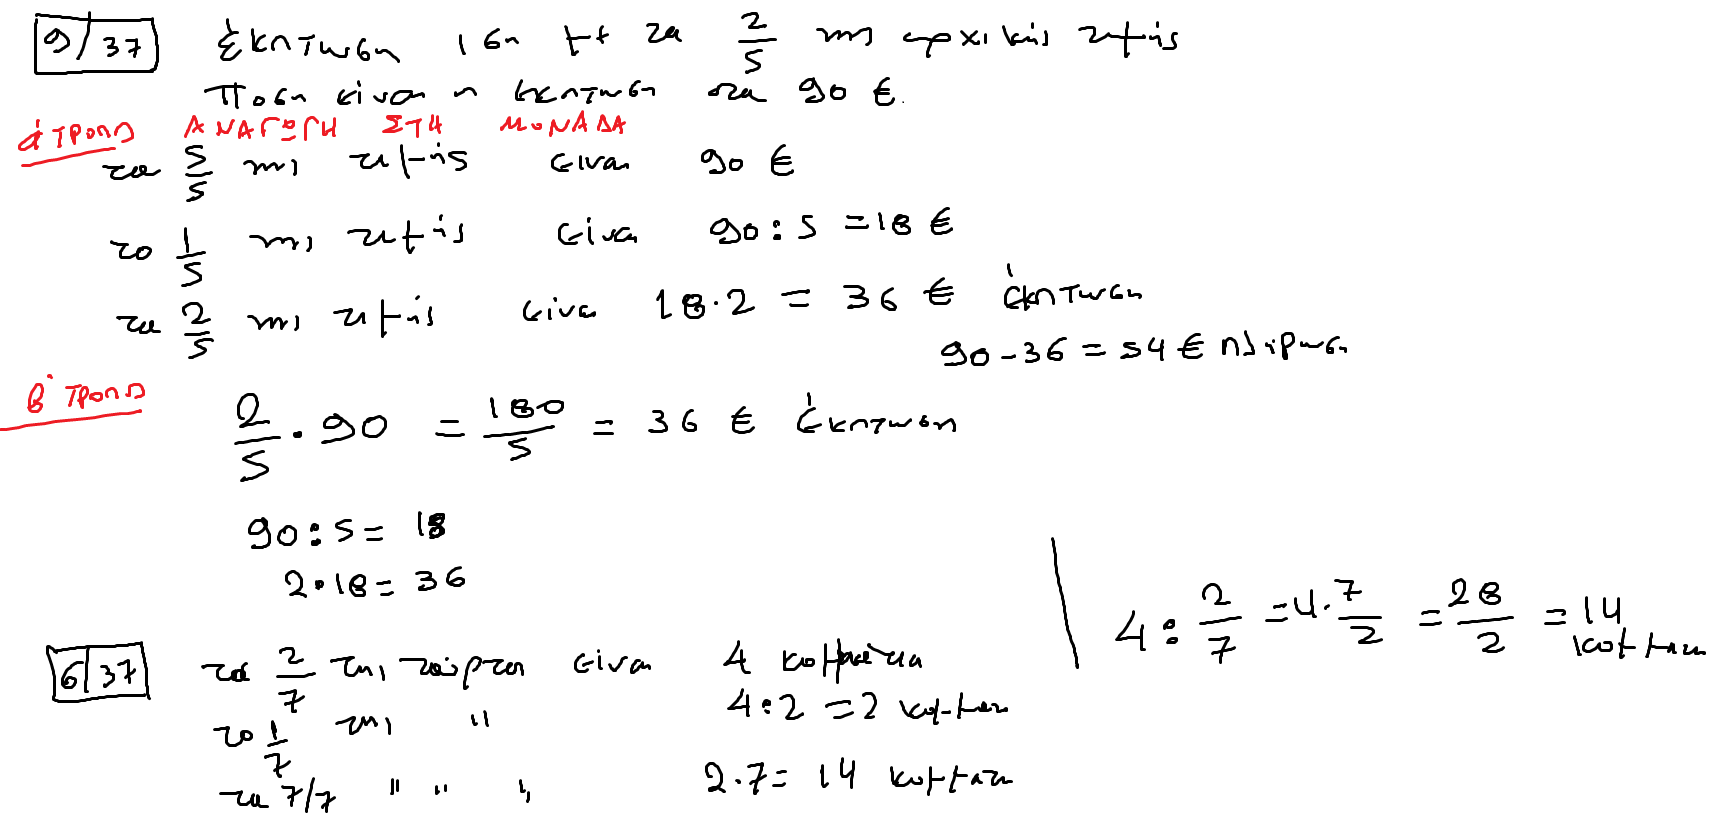 9/37 έκπτωση ίση με τα 2/5 της αρχικής τιμής
Πόση είναι η έκπτωση στα 90 €.
α' τρόπος ΑΝΑΓΩΓΗ ΣΤΗ ΜΟΝΑΔΑ
τα 5/5 της τιμής είναι 90 €
το 1/5 της τιμής είναι 90 : 5 = 18 €
τα 2/5 της τιμής είναι 18·2 = 36 € έκπτωση
90 - 36 = 54 € πλήρωσε
β' τρόπος
2/5 · 90 = 180/5 = 36 € έκπτωση
90 : 5 = 18
2·18 = 36
4 : 2/7 = 4·7/2 = 28/2 = 14 κομμάτια
6/37 τα 2/7 της τούρτας είναι 4 κομμάτια
το 1/7 της " 4:2 = 2 κομμάτια
τα 7/7 " " " 2·7 = 14 κομμάτια